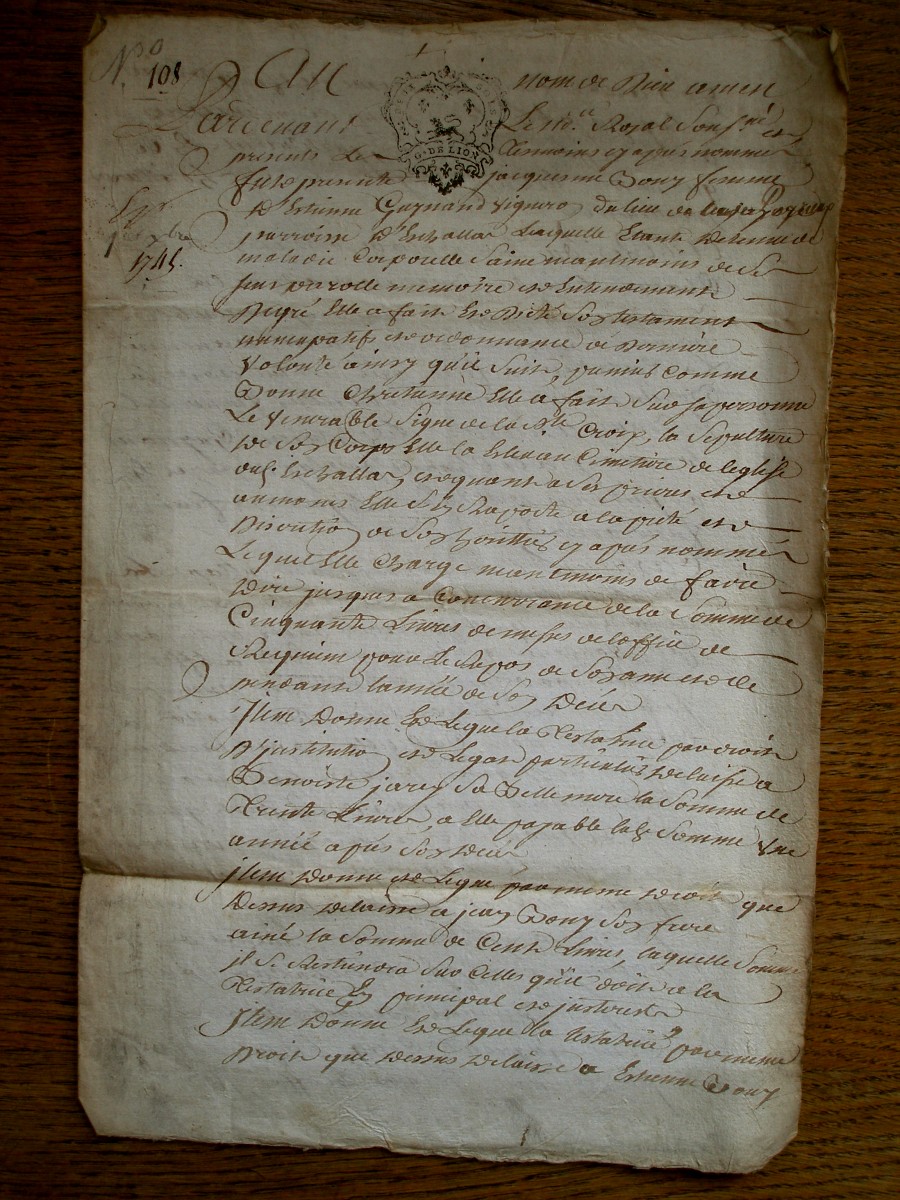 No 108
Au nom de Dieu amen
Pardevant Le no.re Royal Sousne et
G. DE LION
presents les temoins cy apres nommés
fut presente jacquesme Bony femme
d'Estienne Guynand Vigneron du lieu de
7bre
1745.
parroisse d'Eschallas Laquelle Etante detenue de
maladie Corporelle Saine neantmoins de Ses
sens parolle memoire et Entendement
Degré Elle a fait et Dicté Son testament
nuncupatif et ordonnance de Derniere
Volonté ainsy qu'il Suit, premis comme
Bonne Chretienne Elle a fait Sur Sa personne
Le Venerable Signe de la Ste Croix, la Sepulture
de Son Corps Elle la Eslit au Cimetiere de l'eglise
dud. Eschallas, et quant a Ses prieres et
aumones Elle S'en Raporte a la pieté et
Discretion de Son heritier cy apres nommé
Lequel Elle Charge neantmoins de faire
Dire jusques a Concurrance de la Somme de
Cinquante Livres de messes de l'office de
Requiem pour le Repos de Son ame et ce
pendant l'année de Son Deces
Item Donne et Legue la Testatrice par droit
D'institution et Legat particulier delaisse a
Benoiste jarey Sa Belle mere la Somme de
Trente Livres, a Elle payable lad. Somme Une
année apres Son Deces
Item Donne et Legue par meme droit que
Dessus delaisse a jean Bony Son frere
ainé la Somme de Cent Livres, laquelle Somme
il Se Retiendra Sur Celles qu'il doit a la
Testatrice En principal et interests
Item Donne Et Legue la testatrice par meme
Droit que dessus delaisse a Estienne Bony